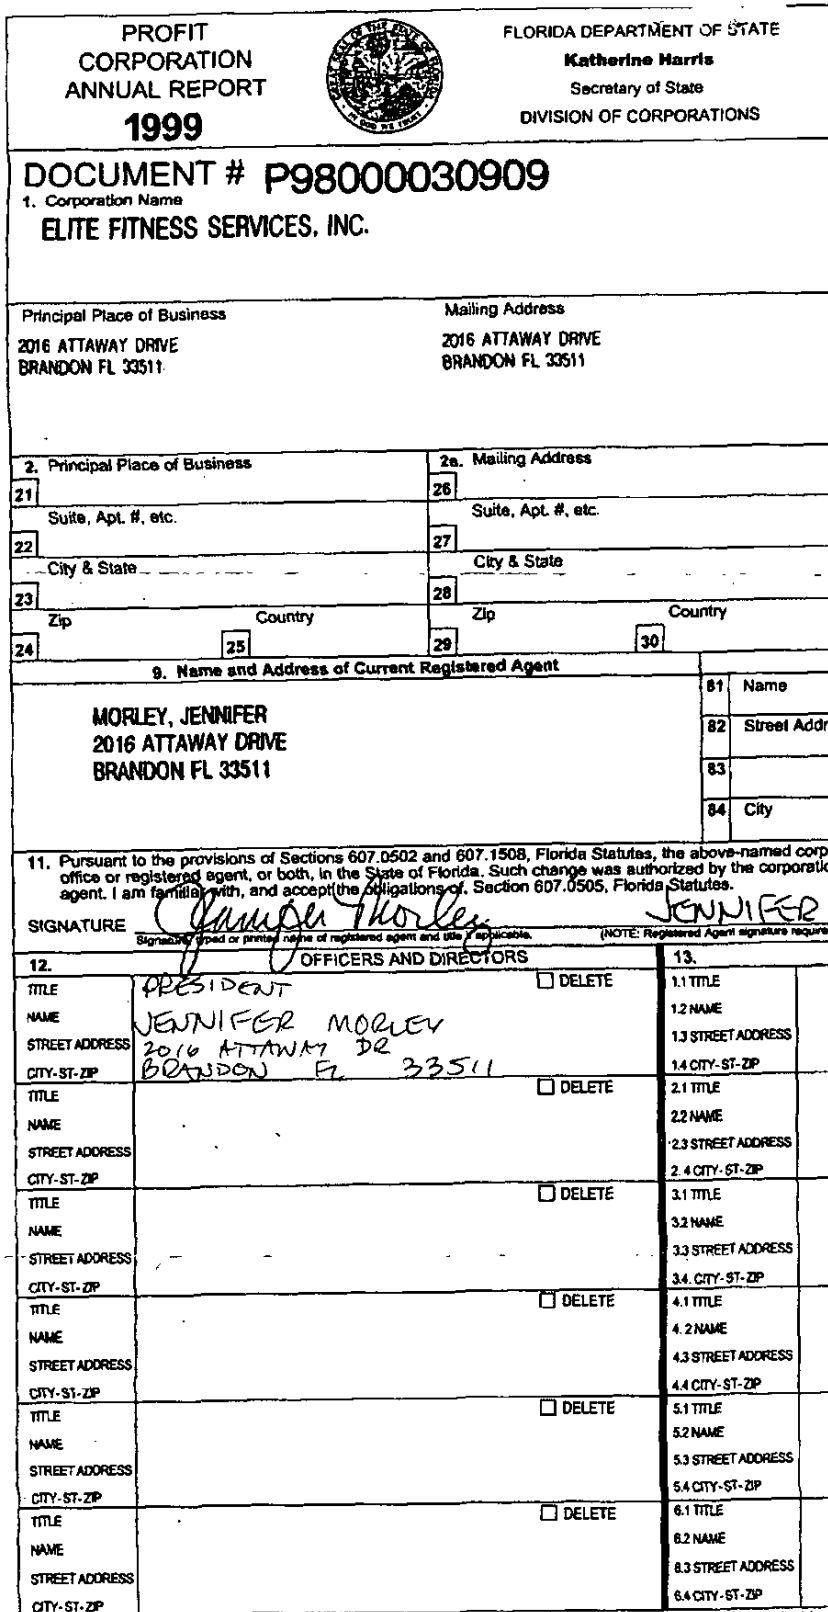 PROFIT
CORPORATION
ANNUAL REPORT
1999
GREAT SEAL OF THE STATE OF FLORIDA
IN GOD WE TRUST
FLORIDA DEPARTMENT OF STATE
Katherine Harris
Secretary of State
DIVISION OF CORPORATIONS
DOCUMENT # P98000030909
1. Corporation Name
ELITE FITNESS SERVICES, INC.
Principal Place of Business
2016 ATTAWAY DRIVE
BRANDON FL 33511
Mailing Address
2016 ATTAWAY DRIVE
BRANDON FL 33511
2. Principal Place of Business
21
Suite, Apt. #, etc.
22
City & State
23
Zip
24
Country
25
2a. Mailing Address
26
Suite, Apt. #, etc.
27
City & State
28
Zip
29
Country
30
9. Name and Address of Current Registered Agent
MORLEY, JENNIFER
2016 ATTAWAY DRIVE
BRANDON FL 33511
81 Name
82 Street Addr
83
84 City
11. Pursuant to the provisions of Sections 607.0502 and 607.1508, Florida Statutes, the above-named corp
office or registered agent, or both, in the State of Florida. Such change was authorized by the corporatio
agent. I am familiar with, and accept the obligations of, Section 607.0505, Florida Statutes.
SIGNATURE Jennifer Morley JENNIFER
Signature, typed or printed name of registered agent and title if applicable. (NOTE: Registered Agent signature require
12. OFFICERS AND DIRECTORS 13.
TITLE PRESIDENT DELETE
NAME JENNIFER MORLEY
STREET ADDRESS 2016 ATTAWAY DR
CITY-ST-ZIP BRANDON FL 33511
1.1 TITLE
1.2 NAME
1.3 STREET ADDRESS
1.4 CITY-ST-ZIP
TITLE DELETE
NAME
STREET ADDRESS
CITY-ST-ZIP
2.1 TITLE
2.2 NAME
2.3 STREET ADDRESS
2. 4 CITY-ST-ZIP
TITLE DELETE
NAME
STREET ADDRESS
CITY-ST-ZIP
3.1 TITLE
3.2 NAME
3.3 STREET ADDRESS
3.4. CITY-ST-ZIP
TITLE DELETE
NAME
STREET ADDRESS
CITY-ST-ZIP
4.1 TITLE
4. 2 NAME
4.3 STREET ADDRESS
4.4 CITY-ST-ZIP
TITLE DELETE
NAME
STREET ADDRESS
CITY-ST-ZIP
5.1 TITLE
5.2 NAME
5.3 STREET ADDRESS
5.4 CITY-ST-ZIP
TITLE DELETE
NAME
STREET ADDRESS
CITY-ST-ZIP
6.1 TITLE
6.2 NAME
6.3 STREET ADDRESS
6.4 CITY-ST-ZIP